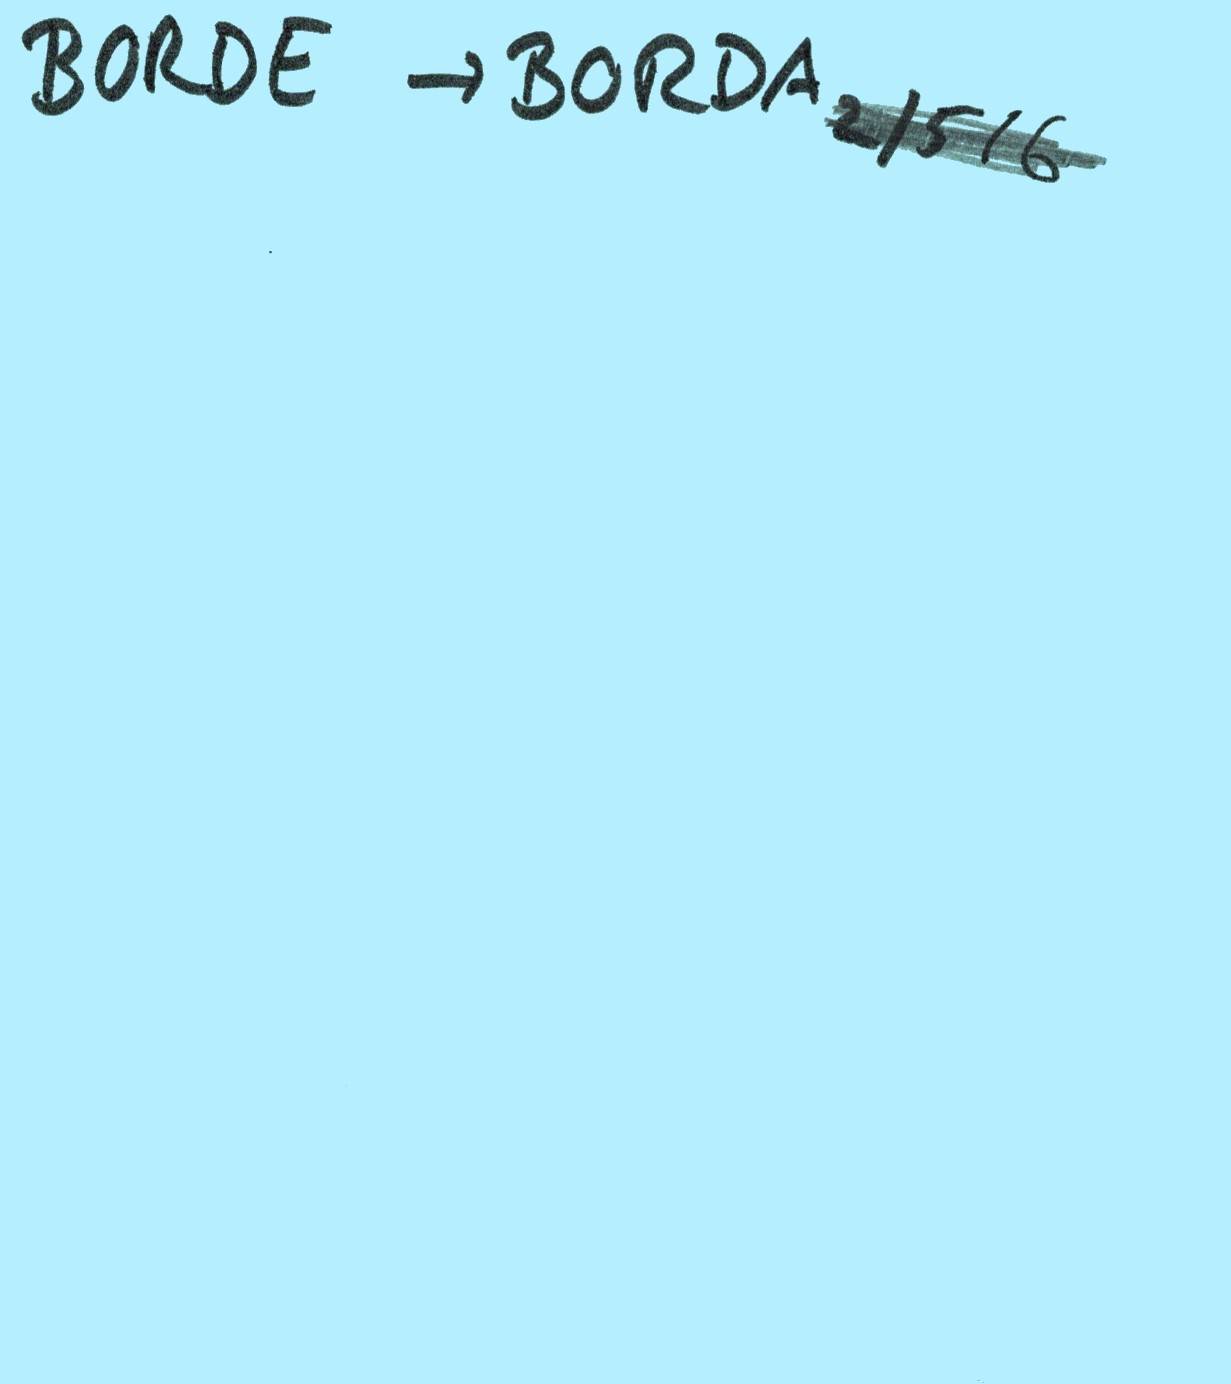 BORDE → BORDA 2/5/6